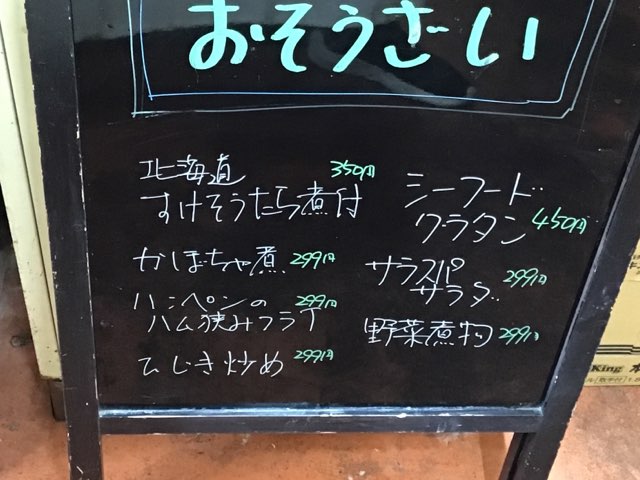 おそうざい
北海道 350円
すけそうたら煮付
かぼちゃ煮 299円
ハンペンの 299円
ハム挟みフライ
ひじき炒め 299円
シーフード
グラタン 450円
サラスパ 299円
サラダ
野菜煮物 299円
King